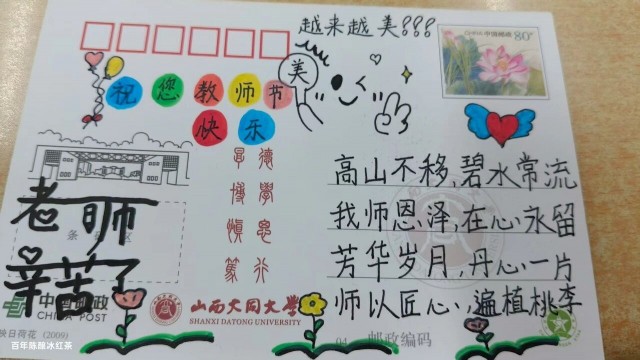 越来越美???
CHINA 中国邮政 80分
美
祝您教师节
快乐
厚德
博學
慎思
篤行
高山不移,碧水常流
我师恩泽,在心永留
芳华岁月,丹心一片
师以匠心,遍植桃李
老师
辛苦了
中国邮政
CHINA POST
山西大同大学
SHANXI DATONG UNIVERSITY
邮政编码
映日荷花 (2009)
百年陈酿冰红茶